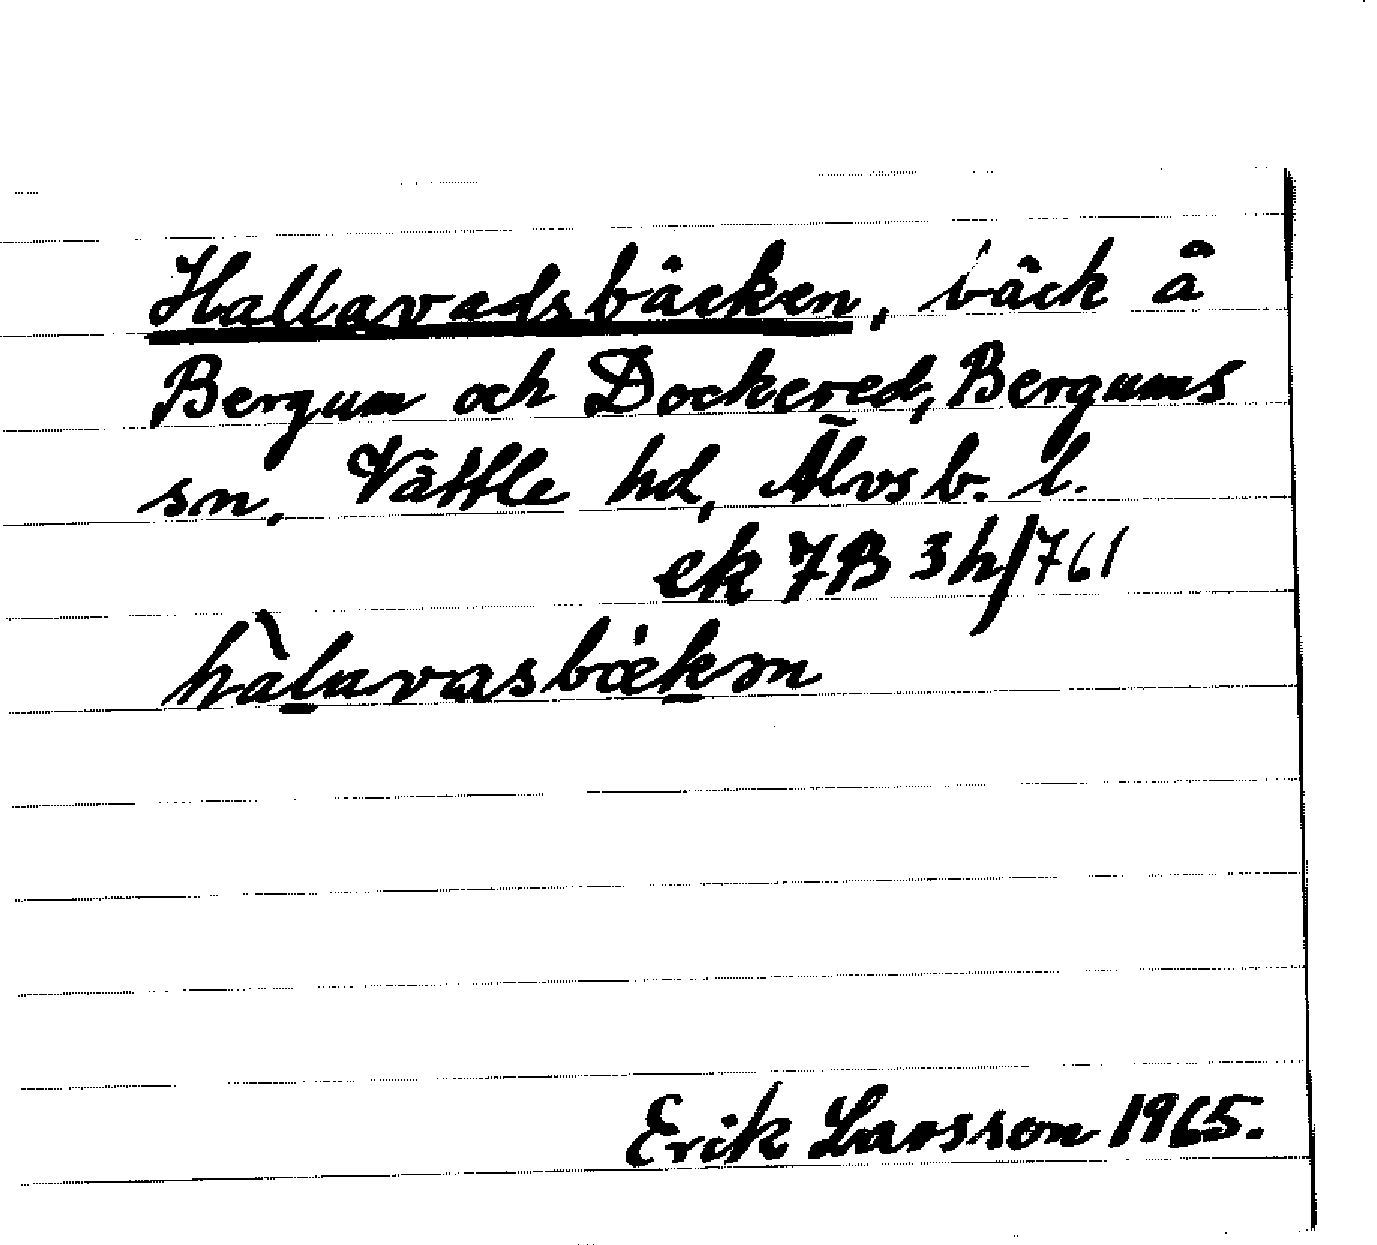 Hallavadsbäcken, bäck å
Bergum och Dockered, Bergums
sn, Vättle hd, Älvsb. l.
ek 7B 3h/761
hàlavasbækən
Erik Larsson 1965.